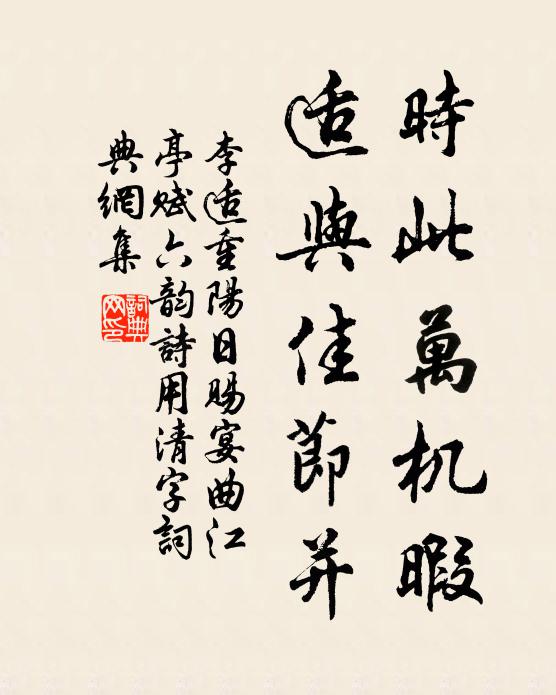 時此萬机暇
适與佳節并
李适重陽日賜宴曲江
亭賦六韵詩用清字詞
典網集
詞典网印